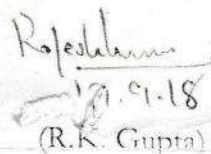 Rajesh Kumar
19.9.18
(R.K. Gupta)